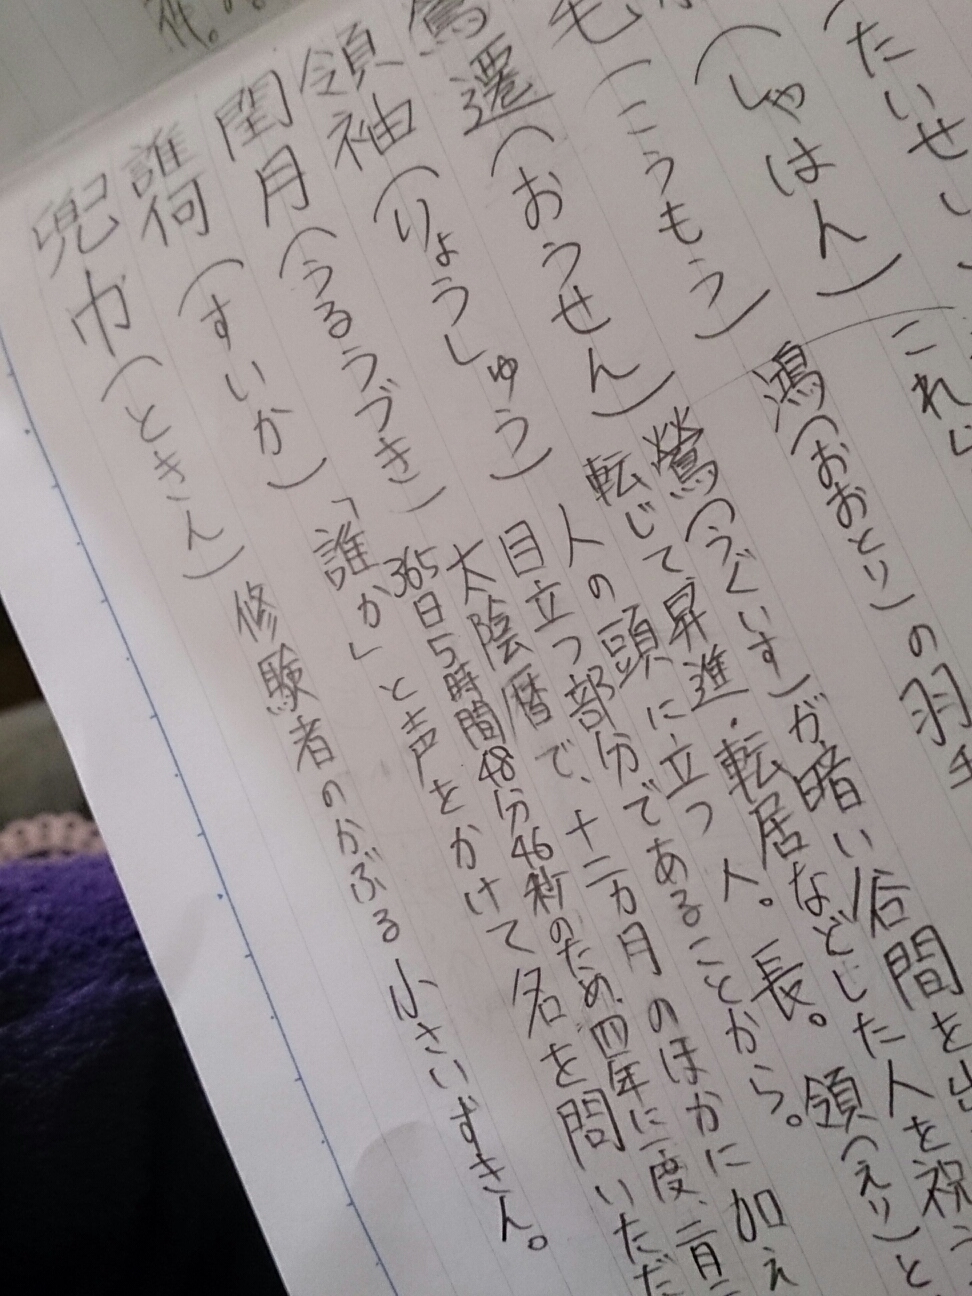 たいせい
これ
(しゃはん)
毛(こうもう)鴻(おおとり)の羽毛
鶯遷(おうせん)鶯(うぐいす)が暗い谷間を出
転じて、昇進・転居などした人を祝う
領袖(りょうしゅう)人の頭に立つ人。長。領(えり)と
目立つ部分であることから。
閏月(うるうづき)太陰暦で、十二カ月のほかに加え
365日5時間48分46秒のため、四年に一度、二月
誰何(すいか)「誰か」と声をかけて名を問いただ
兜巾(ときん)修験者のかぶる小さいずきん。